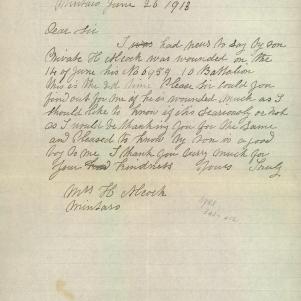 Mintaro June 26 1918
Dear Sir
I was had news to say my son
Private H Alcock was wounded on the
14 of June his No 6959 10 Battalion
this is the 3rd time Please Sir could you
find out for me if he is wounded much as I
should like to know if its seariously or not
as I would be thanking you for the same
and pleased to know my son is a good
boy to me I thank you very much for
your kindness Yours Truly
Mrs H Alcock
Mintaro